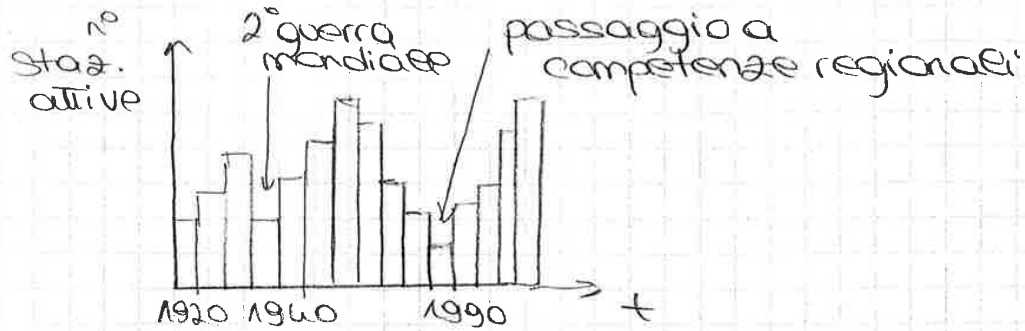 n°
staz.
attive
2° guerra
mondiale
passaggio a
competenze regionali
1920 1940 1990 t